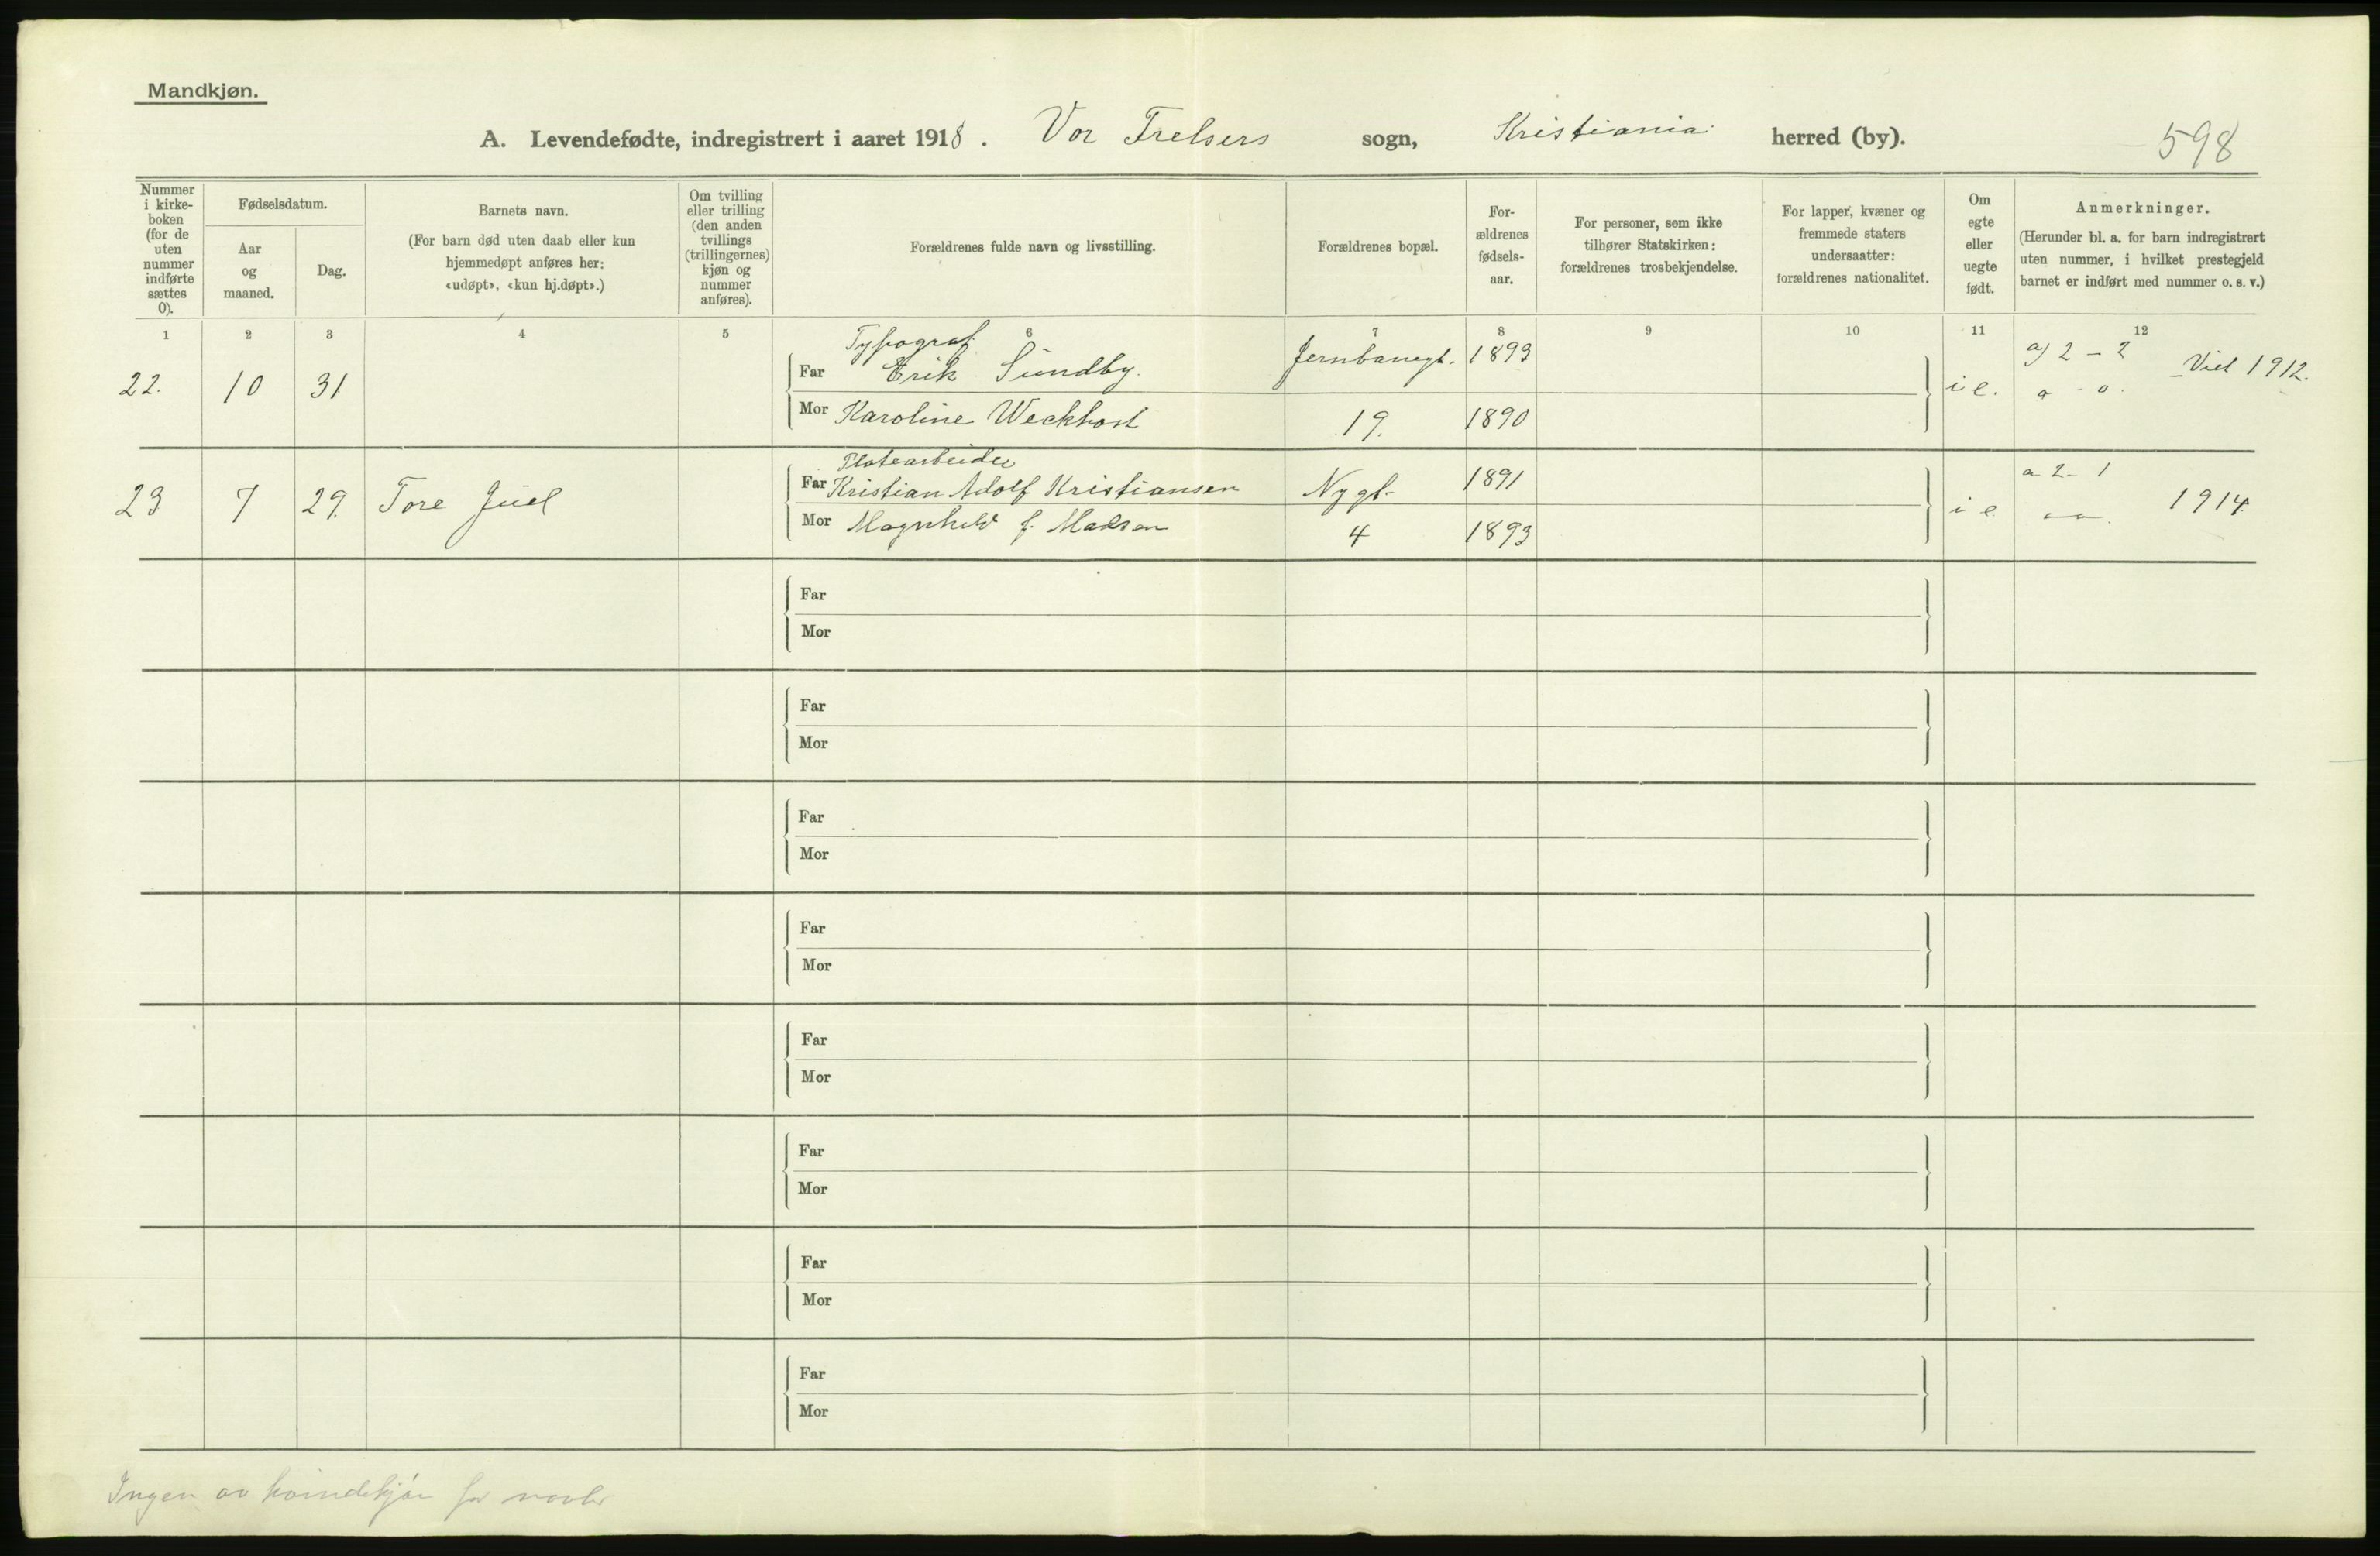 Mandkjøn.
A. Levendefødte, indregistrert i aaret 1918. Vor Frelsers sogn, Kristiania herred (by).
598
Nummer i kirke-boken (for de uten nummer indførte sættes 0).
Fødselsdatum.
Aar og maaned.
Dag.
Barnets navn.
(For barn død uten daab eller kun
hjemmedøpt anføres her:
«udøpt», «kun hj.døpt».)
Om tvilling
eller trilling
(den anden
tvillings
(trillingernes)
kjøn og
nummer
anføres).
Forældrenes fulde navn og livsstilling.
Forældrenes bopæl.
For-
ældrenes
fødsels-
aar.
For personer, som ikke
tilhører Statskirken:
forældrenes trosbekjendelse.
For lapper, kvæner og
fremmede staters
undersaatter:
forældrenes nationalitet.
Om
egte
eller
uegte
født.
Anmerkninger.
(Herunder bl. a. for barn indregistrert
uten nummer, i hvilket prestegjeld
barnet er indført med nummer o. s. v.)
1 2 3 4 5 6 7 8 9 10 11 12
Typograf
22. 10 31 Far Erik Sundby. Jernbanegt. 1893 i e. a) 2 - 2 Viet 1912.
Mor Karoline Weckhost 19. 1890 o - o.
Platearbeider
23 7 29. Tore Juel Far Kristian Adolf Kristiansen Nygt- 1891 i e a 2 - 1 1914.
Mor Magnhild f. Madsen 4 1893
Far
Mor
Far
Mor
Far
Mor
Far
Mor
Far
Mor
Far
Mor
Far
Mor
Far
Mor
Ingen av kvindekjøn